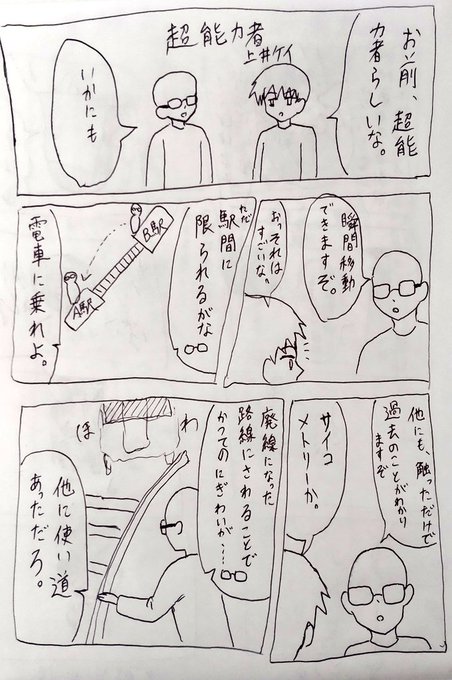 超能力者
上井ケイ
お前、超能
力者らしいな。
いかにも
瞬間移動
できますぞ。
おっそれは
すごいな。
ただ
駅間に
限られるがな
B駅
A駅
電車に乗れよ。
他にも、触っただけで
過去のことがわかり
ますぞ
サイコ
メトリーか。
廃線になった
路線にさわることで
かつてのにぎわいが…
ほわ
他に使い道
あっただろ。